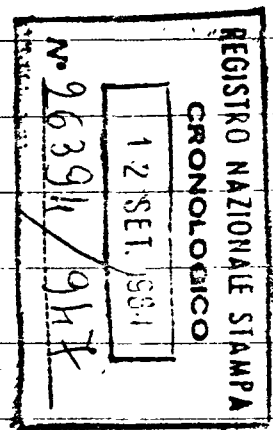 REGISTRO NAZIONALE STAMPA
CRONOLOGICO
12 SET.
N° 26394/947